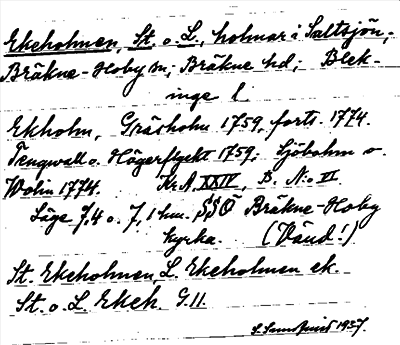 Ekeholmen, St. o. L., holmar i Saltsjön;
Bräkne-Hoby sn; Bräkne hd; Blek-
inge l.
Ekholm, Gräsholm 1759, forts. 1774.
Tengwall o. Högerflycht 1759; Sjöbohm o.
Wolin 1774. Kr.A. XXIV, B. N:o VI
Läge 7,4 o. 7,1 km. SSÖ Bräkne-Hoby
kyrka. (Vänd!)
St. Ekeholmen, L. Ekeholmen ek.
St. o. L. Ekeh. G.11.
1937.